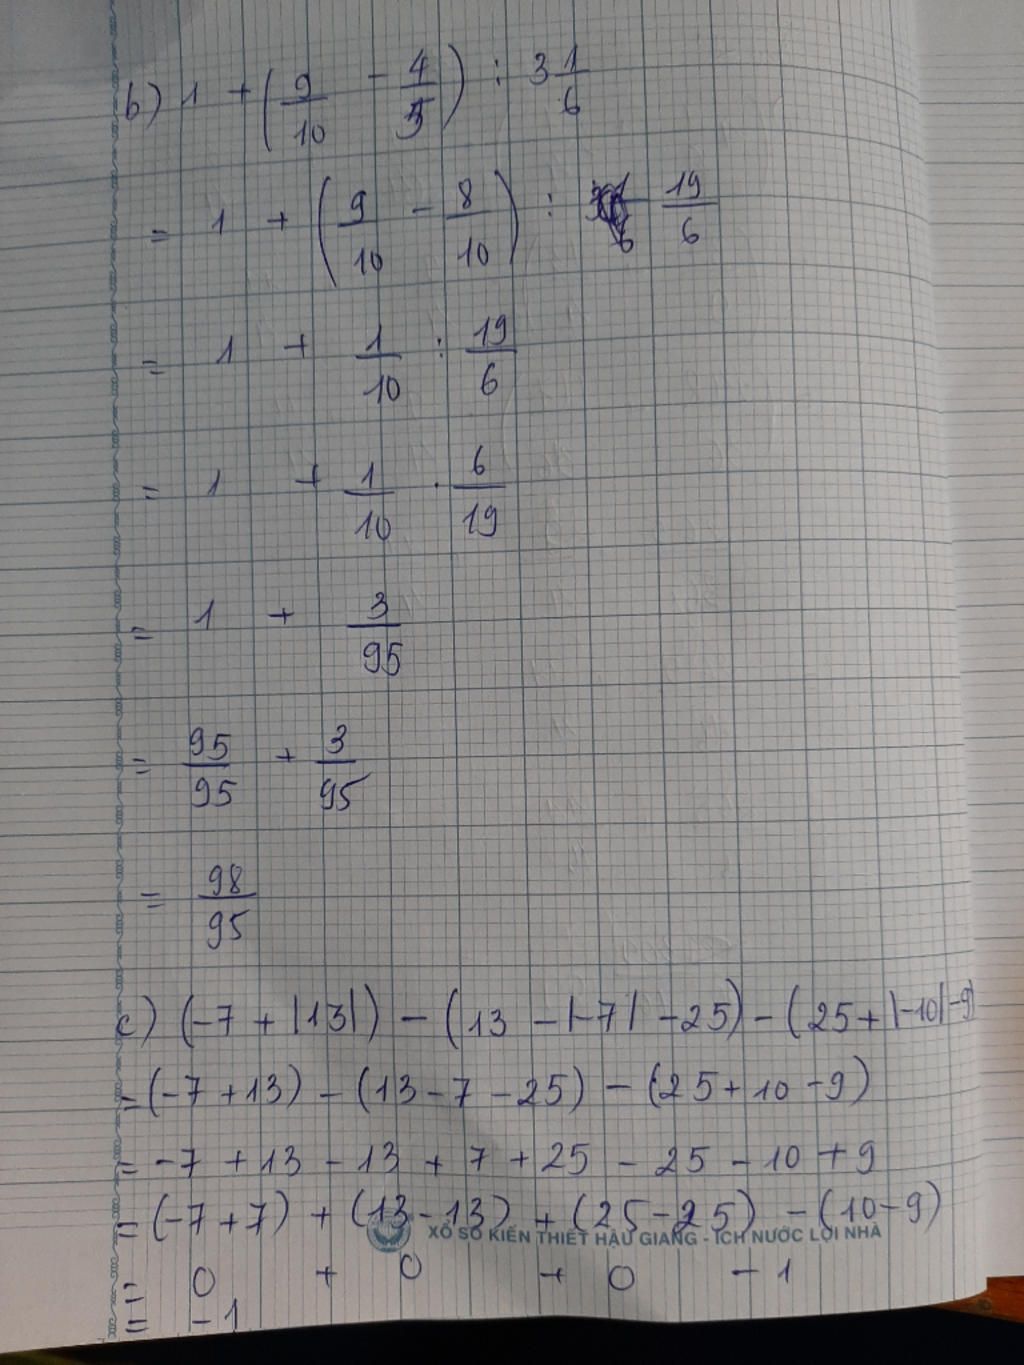 b) 1 + (9/10 - 4/5) : 3 1/6
= 1 + (9/10 - 8/10) : 19/6
= 1 + 1/10 : 19/6
= 1 + 1/10 . 6/19
= 1 + 3/95
= 95/95 + 3/95
= 98/95
c) (-7 + |13|) - (13 - |-7| - 25) - (25 + |-10| - 9)
= (-7 + 13) - (13 - 7 - 25) - (25 + 10 - 9)
= -7 + 13 - 13 + 7 + 25 - 25 - 10 + 9
= (-7 + 7) + (13 - 13) + (25 - 25) - (10 - 9)
XỔ SỐ KIẾN THIẾT HẬU GIANG - ÍCH NƯỚC LỢI NHÀ
= 0 + 0 + 0 - 1
= -1